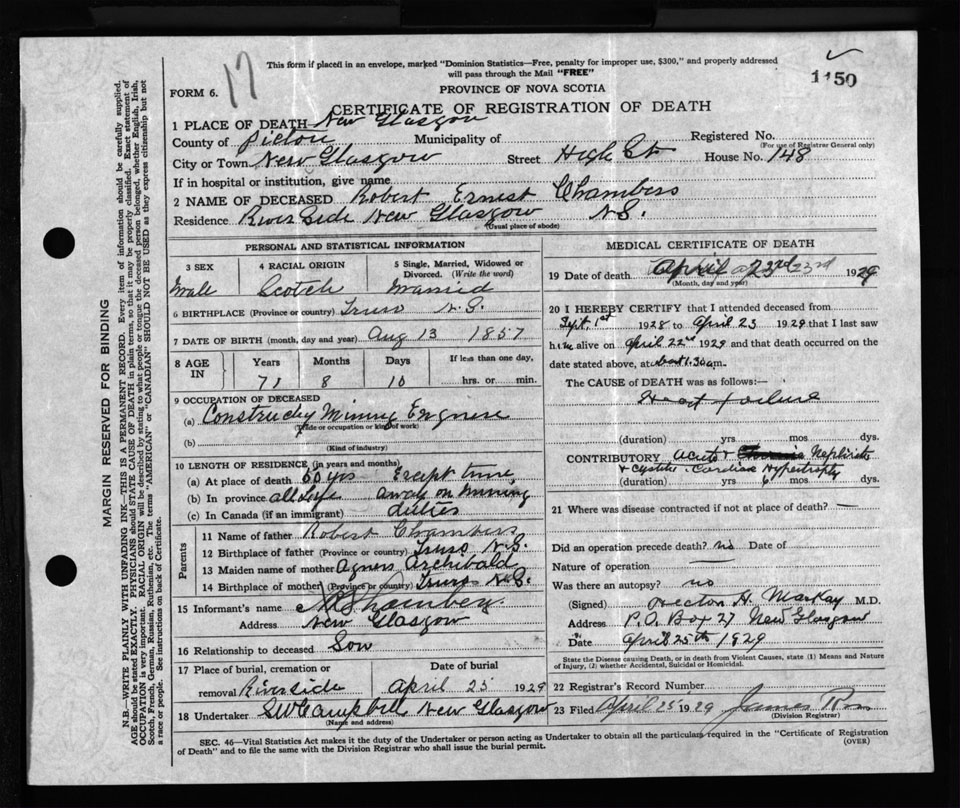 This form if placed in an envelope, marked "Dominion Statistics—Free, penalty for improper use, $300," and properly addressed
will pass through the Mail "FREE"
1150
17
FORM 6.
PROVINCE OF NOVA SCOTIA
CERTIFICATE OF REGISTRATION OF DEATH
1 PLACE OF DEATH New Glasgow
County of Pictou Municipality of Registered No.
(For use of Registrar General only)
City or Town New Glasgow Street High St House No. 148
If in hospital or institution, give name
2 NAME OF DECEASED Robert Ernest Chambers
Residence River Side New Glasgow N.S.
(Usual place of abode)
PERSONAL AND STATISTICAL INFORMATION
3 SEX 4 RACIAL ORIGIN 5 Single, Married, Widowed or
Divorced. (Write the word)
Male Scotch Married
6 BIRTHPLACE (Province or country) Truro N.S.
7 DATE OF BIRTH (month, day and year) Aug 13 1857
8 AGE IN Years Months Days If less than one day,
71 8 10 hrs. or min.
9 OCCUPATION OF DECEASED
(a) Mining
(Trade or occupation or kind of work)
(b)
(Kind of industry)
10 LENGTH OF RESIDENCE (in years and months)
(a) At place of death 50 yrs Except time
(b) In province all life away on Mining
(c) In Canada (if an immigrant) duties
Parents
11 Name of father Robert Chambers
12 Birthplace of father (Province or country) Truro N.S.
13 Maiden name of mother Agness Archibald
14 Birthplace of mother (Province or country) Truro N.S.
15 Informant's name
Address New Glasgow
16 Relationship to deceased Son
17 Place of burial, cremation or Date of burial
removal Riverside April 25 1929
18 Undertaker S W Campbell New Glasgow
(Name and address)
MEDICAL CERTIFICATE OF DEATH
19 Date of death April 23rd 23rd 1929
(Month, day and year)
20 I HEREBY CERTIFY that I attended deceased from
Sept. 1st 1928 to April 23 1929 that I last saw
him alive on April 22nd 1929 and that death occurred on the
date stated above, at about 1.30 a.m.
The CAUSE of DEATH was as follows:—
Heart failure
(duration) yrs mos dys.
CONTRIBUTORY acute + Nephritis
+ cystitis - Cardiac Hypertrophy
(duration) yrs. 6 mos. dys.
21 Where was disease contracted if not at place of death? —
Did an operation precede death? no Date of
Nature of operation —
Was there an autopsy? no
(Signed) Hector H. MacKay M.D.
Address P.O. Box 27 New Glasgow
Date April 25th 1929
State the Disease causing Death, or in death from Violent Causes, state (1) Means and Nature
of Injury, (2) whether Accidental, Suicidal or Homicidal.
22 Registrar's Record Number
23 Filed April 25 1929 James
(Division Registrar)
SEC. 46—Vital Statistics Act makes it the duty of the Undertaker or person acting as Undertaker to obtain all the particulars required in the "Certificate of Registration
of Death" and to file the same with the Division Registrar who shall issue the burial permit.
(OVER)
MARGIN RESERVED FOR BINDING
N.B.—WRITE PLAINLY WITH UNFADING INK—THIS IS A PERMANENT RECORD. Every item of information should be carefully supplied.
AGE should be stated EXACTLY. PHYSICIANS should STATE CAUSE OF DEATH in plain terms, so that it may be properly classified. Exact statement of
OCCUPATION is very important. RACIAL ORIGIN will be described by stating to what people or tongue the deceased person belonged, whether English, Irish,
Scotch, French, German, Russian, Ruthenian, etc. The terms "AMERICAN" or "CANADIAN" SHOULD NOT BE USED as they express citizenship but not
a race or people. See instructions on back of Certificate.